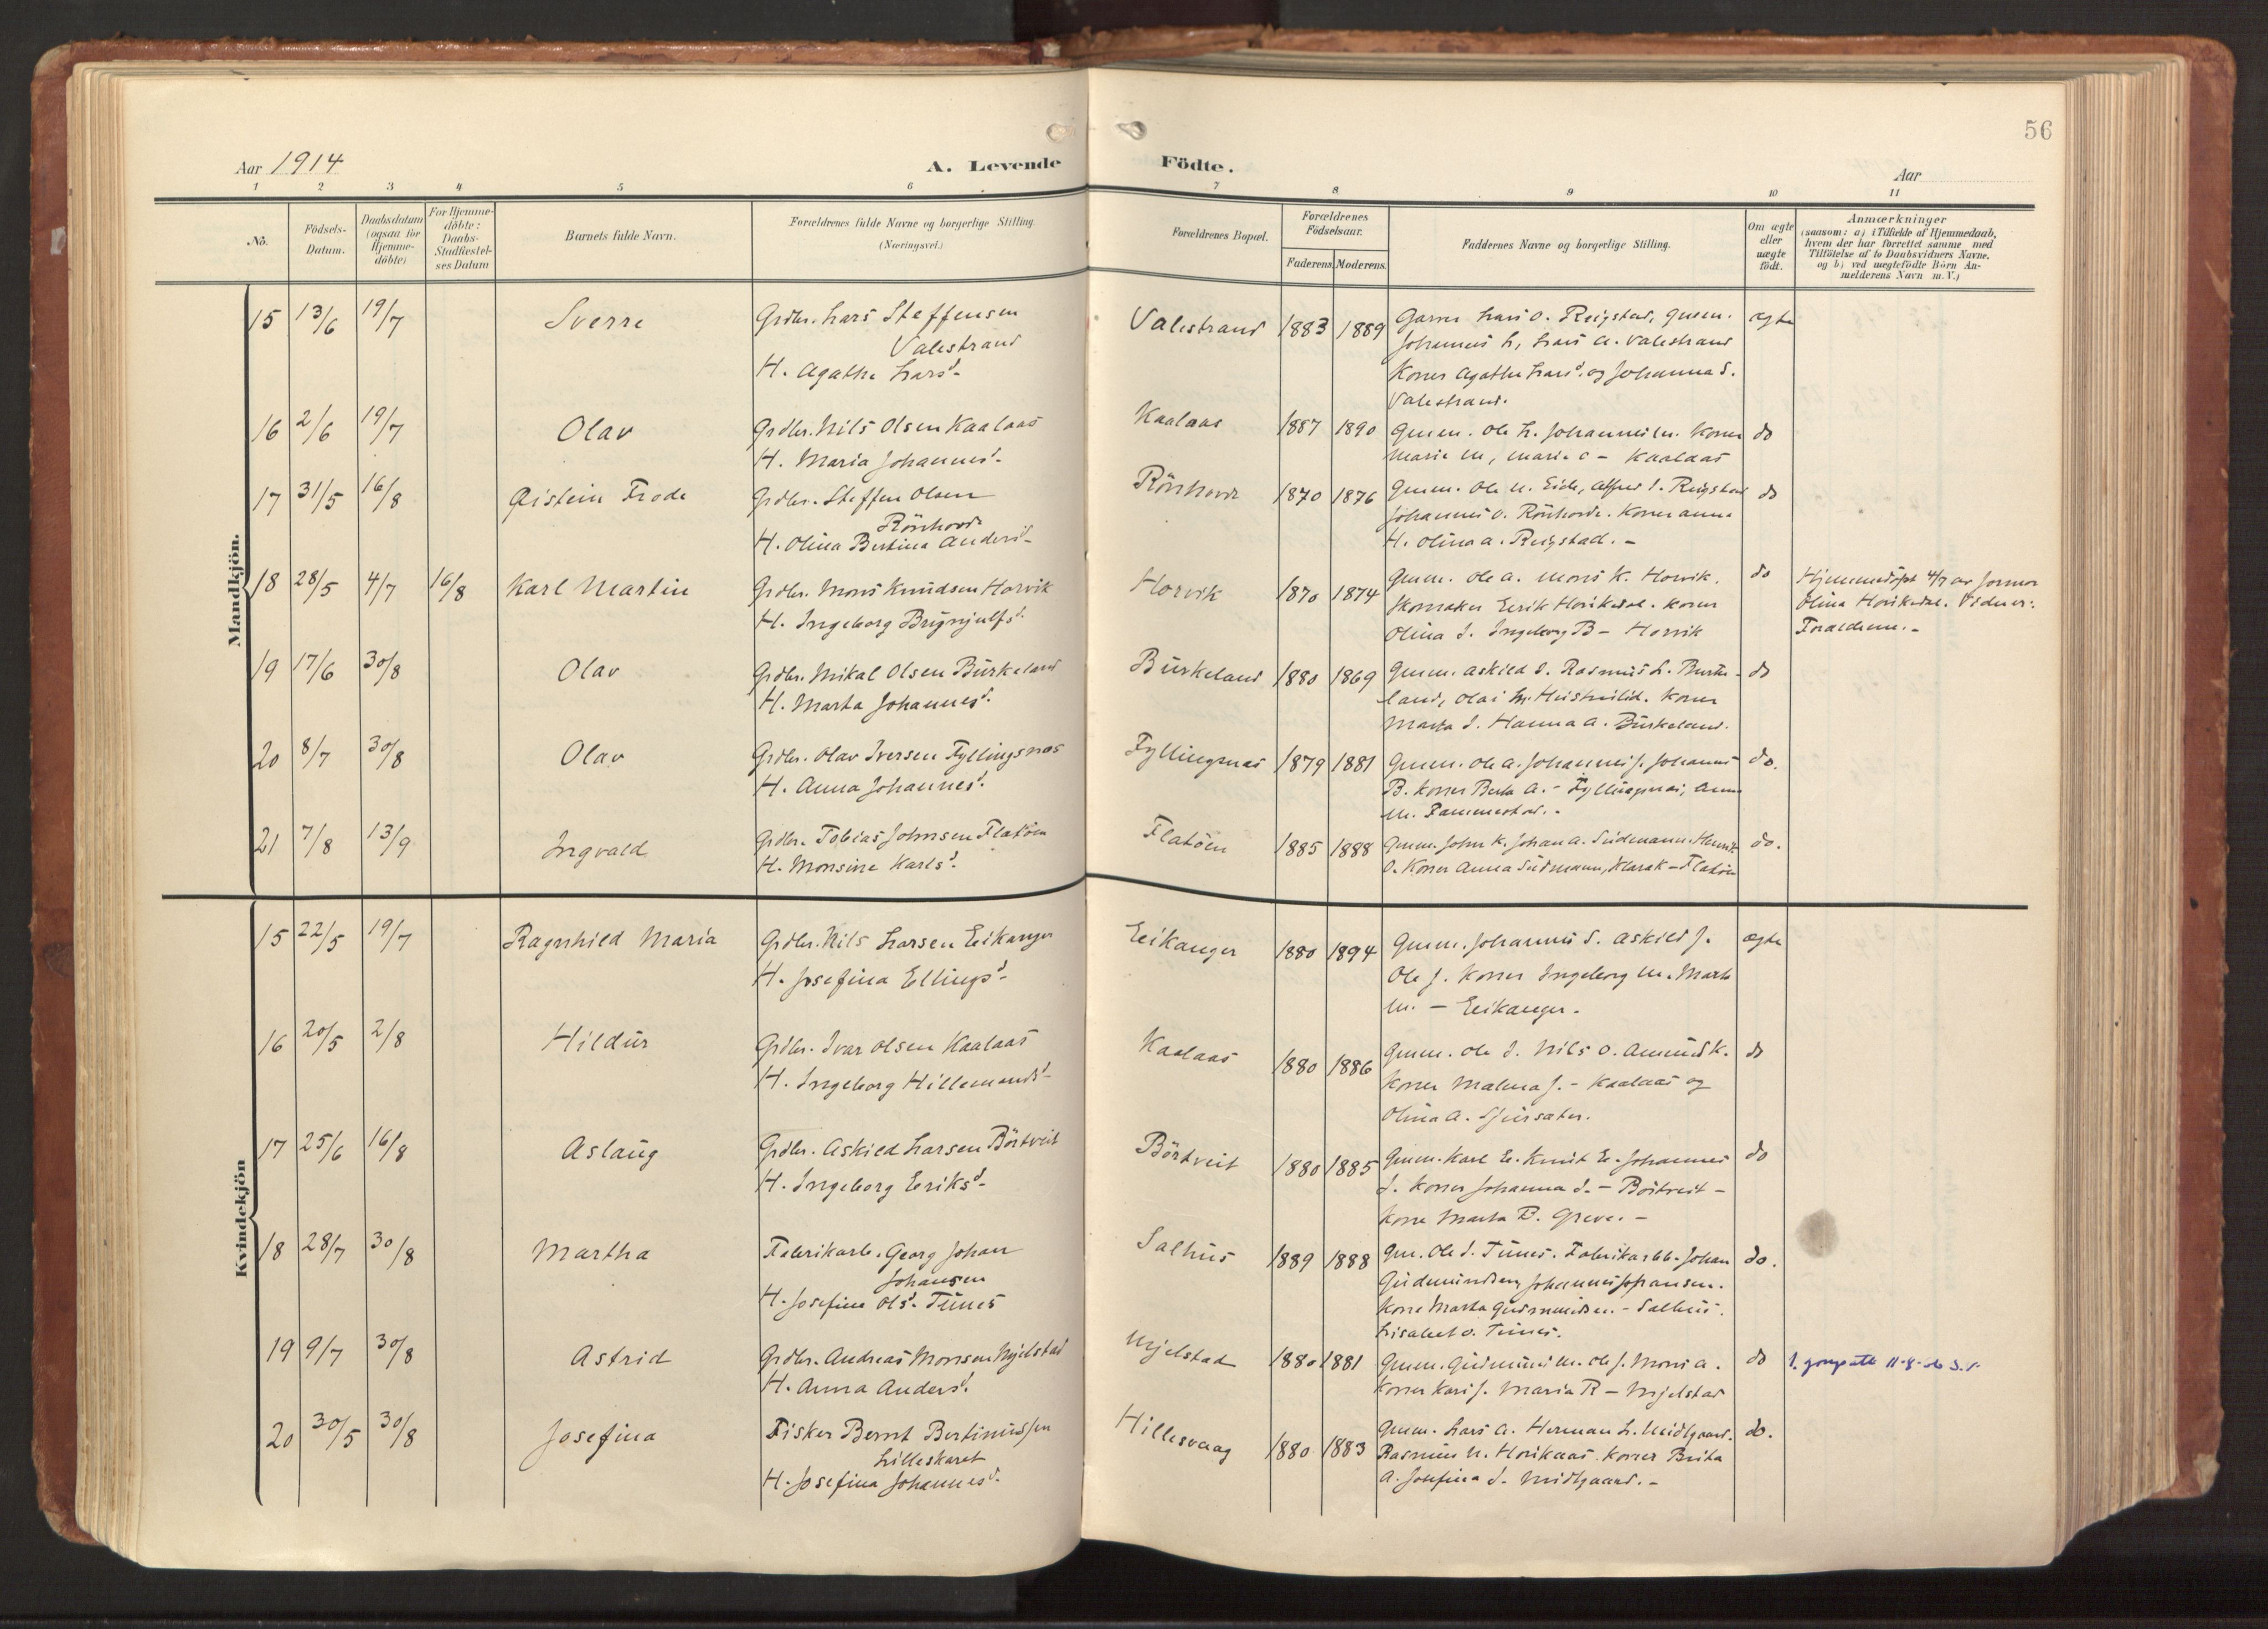 56
Aar 1914
A. Levende Födte.
Aar
1 2 3 4 5 6 7 8 9 10 11
No.
Födsels-
Datum.
Daabsdatum
(ogsaa for
Hjemme-
döbte)
For Hjemme-
döbte:
Daabs-
Stadfæstel-
ses Datum
Barnets fulde Navn.
Forældrenes fulde Navne og borgerlige Stilling.
(Næringsvei.)
Forældrenes Bopæl.
Forældrenes
Födselsaar.
Faderens. Moderens.
Faddernes Navne og borgerlige Stilling.
Om ægte
eller
uægte
födt.
Anmærkninger
(saasom: a) i Tilfælde af Hjemmedaab,
hvem der har forrettet samme med
Tilföielse af to Daabsvidners Navne,
og b) ved uægtefödte Börn An-
melderens Navn m. V.)
Mandkjön.
15 13/6 19/7 Sverre Grdbr. Lars Steffensen
Valestrand
H. Agathe Larsd.
Valestrand 1883 1889 Lars O. Reigstad,
Johannes L, Lars A. Valestrand
Koner Agathe Larsd. og Johanna S.
Valestrand.
ægte
16 2/6 19/7 Olav Grdbr. Nils Olsen Kaalaas
H. Maria Johannesd.
Kaalaas 1887 1890 Gmm. Ole L. Johannes M. Koner
Marie M, Marie O - Kaalaas
do
17 31/5 16/8 Øistein Frode Grdbr. Steffen Olsen
Rönhovde
H. Olina Bertina Andersd.
Rönhovde 1870 1876 Gmm. Ole N. Eide, Alfred S. Reigstad
Johannes O. Rönhovde. Koner Anna
H. Olina A. Reigstad.-
do
18 28/5 4/7 16/8 Karl Martin Grdbr. Mons Knudsen Horvik
H. Ingeborg Brynjulfsd.
Horvik 1870 1874 Gmm. Ole A. Mons K. Horvik.
Skomaker Eirik Horikedal. Koner
Olina I. Ingeborg B - Horvik
do
Hjemmedöpt 4/7 av formor
Olina Horikedal. Vidner:
Forældrene.-
19 17/6 30/8 Olav Grdbr. Mikal Olsen Burkeland
H. Marta Johannesd.
Burkeland 1880 1869 Gmm. Askild I. Rasmus L. Burke-
land, Olai Koner
Marta I. Hanna A. Burkeland.
do
20 8/7 30/8 Olav Grdbr. Olav Iversen Fyllingsnæs
H. Anna Johannesd.
Fyllingsnæs 1879 1881 Gmm. Ole A. Johannes J. Johannes
B. Koner Berta A. - Fyllingsnæs, Anna
M.
do.
21 7/8 13/9 Ingvald Grdbr. Tobias Johnsen Flatöen
H. Monsine Karlsd.
Flatöen 1885 1888 Gmm. John K. Johan A. Sudmann. Henrik
O. Koner Anna Sudmann, Klara K - Flatöen
do.
Kvindekjön
15 22/5 19/7 Ragnhild Maria Grdbr. Nils Larsen Eikanger
H. Josefina Ellingsd.
Eikanger 1880 1894 Gmm. Johannes S. Askild J.
Ole J. Koner Ingeborg M. Marta
M. - Eikanger.
ægte
16 20/5 2/8 Hildur Grdbr. Ivar Olsen Kaalaas
H. Ingeborg Hillemandsd.
Kaalaas 1880 1886 Gmm. Ole I. Nils O. Amund K.
Koner Malena J. - Kaalaas og
Olina A.
do
17 25/6 16/8 Aslaug Grdbr. Askild Larsen Börtveit
H. Ingeborg Eriksd.
Börtveit 1880 1885 Gmm. Karl E. Knut E. Johannes
I. Koner Johanna I. - Börtveit -
Kone Marta B. Greve. -
do
18 28/7 30/8 Martha Fabrikarb. Georg Johan
Johansen
H. Josefine Olsd. Tunes
Salhus 1889 1888 Gm. Ole I. Tunes. Fabrikarbb. Johan
Gudmundsen, Johannes Johansen.
Kone Marta Gudmundsen. - Salhus.
Lisabet O. Tunes.
do.
19 9/7 30/8 Astrid Grdbr. Andreas Monsen Mjelstad
H. Anna Andersd.
Mjelstad 1880 1881 Gmm. Gudmund M. Ole J. Mons A.
Koner Kari J. Maria R - Mjelstad
do
20 30/5 30/8 Josefina Fisker Bernt Bertinussen
Lilleskaret
H. Josefina Johannesd.
Hillesvaag 1880 1883 Gmm. Lars A. Herman L. Midtgaard.
Rasmus N. Horikaas. Koner Brita
A. Josefina I. Midtgaard.-
do.